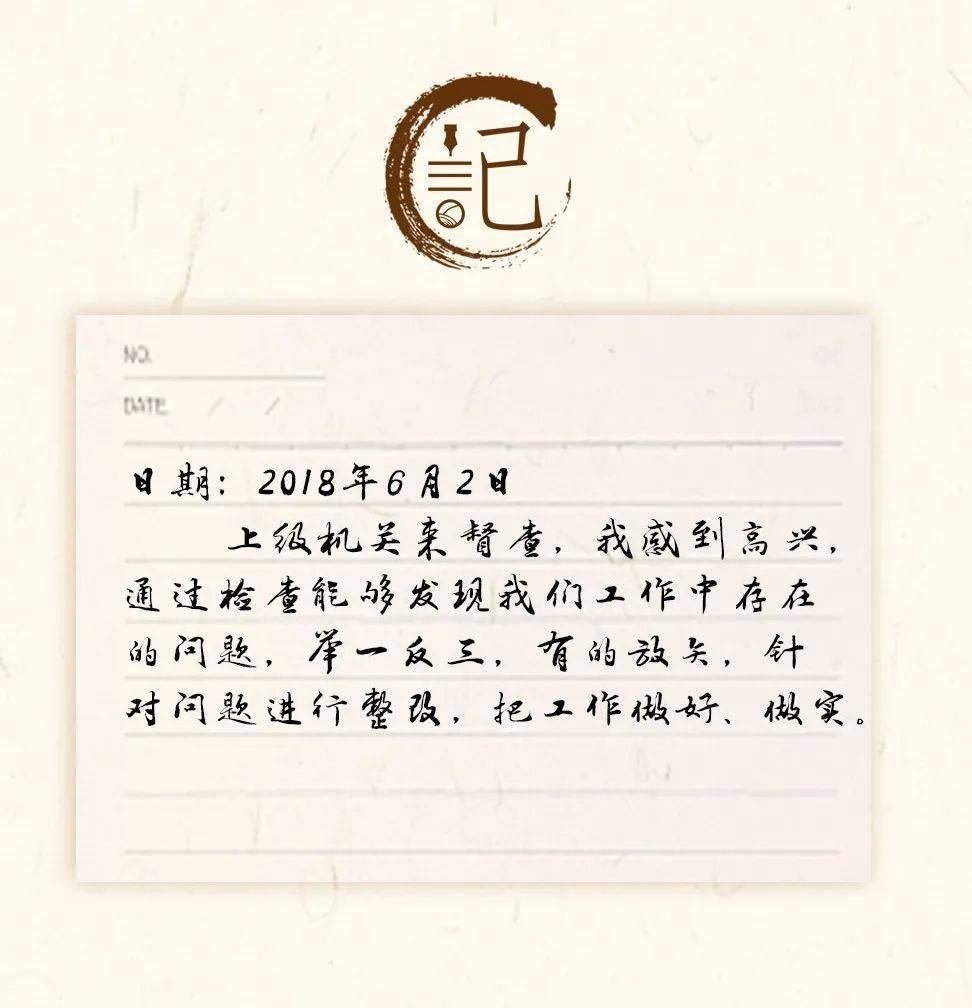 記
NO.
DATE / /
日期：2018年6月2日
上级机关来督查，我感到高兴，
通过检查能够发现我们工作中存在
的问题，举一反三，有的放矢，针
对问题进行整改，把工作做好、做实。